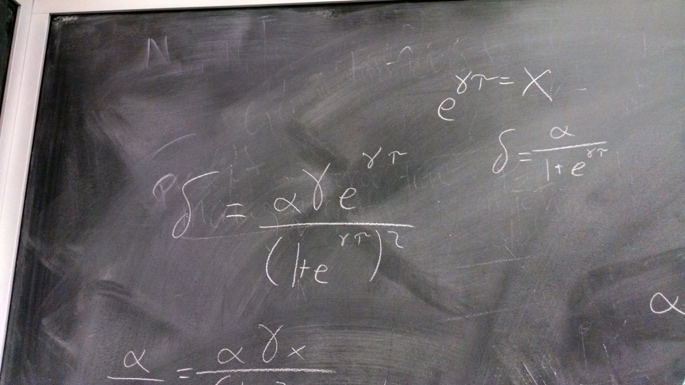 e^{γπ} = X
δ = α / (1 + e^{γπ})
δ = αγe^{γπ} / (1 + e^{γπ})²
α
α / = αγx / (